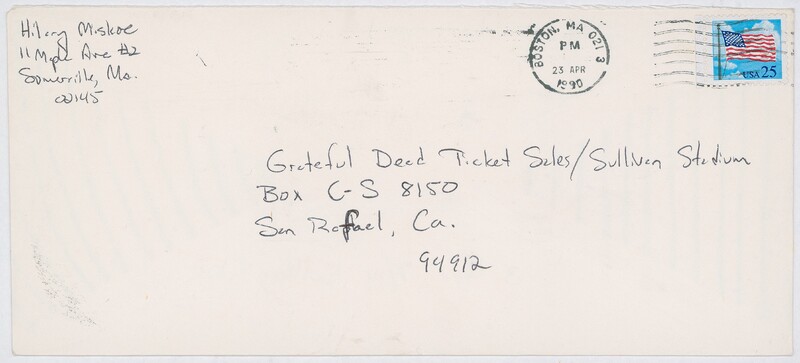 Hilary Miskoe
11 Myrtle Ave #2
Somerville, Ma.
02145
BOSTON, MA 021 3
PM
23 APR
1990
USA 25
Grateful Dead Ticket Sales/Sullivan Stadium
Box C-S 8150
San Rafael, Ca.
94912